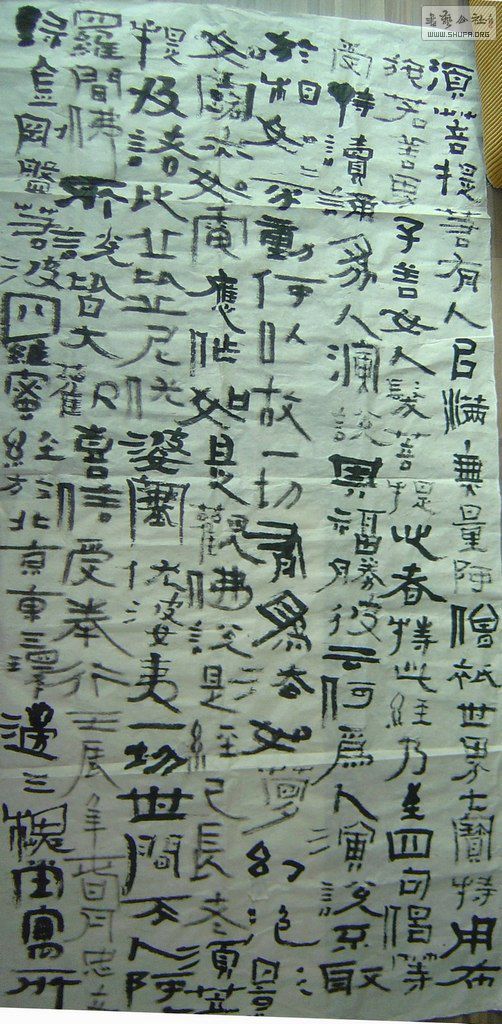 須菩提若有人以滿無量阿僧祇世界七寶持用布
施若善男子善女人發菩提心者持此經乃至四句偈等
受持讀誦為人演說其福勝彼云何為人演說不取
於相如如不動何以故一切有為法如夢幻泡影
如露亦如電應作如是觀佛說是經已長老須菩
提及諸比丘比丘尼優婆塞優婆夷一切世間天人阿
羅聞佛所說皆大歡喜信受奉行壬辰年月
錄金剛般若波羅蜜經於北京東三環邊三槐堂寓所
書艺公社
WWW.SHUFA.ORG